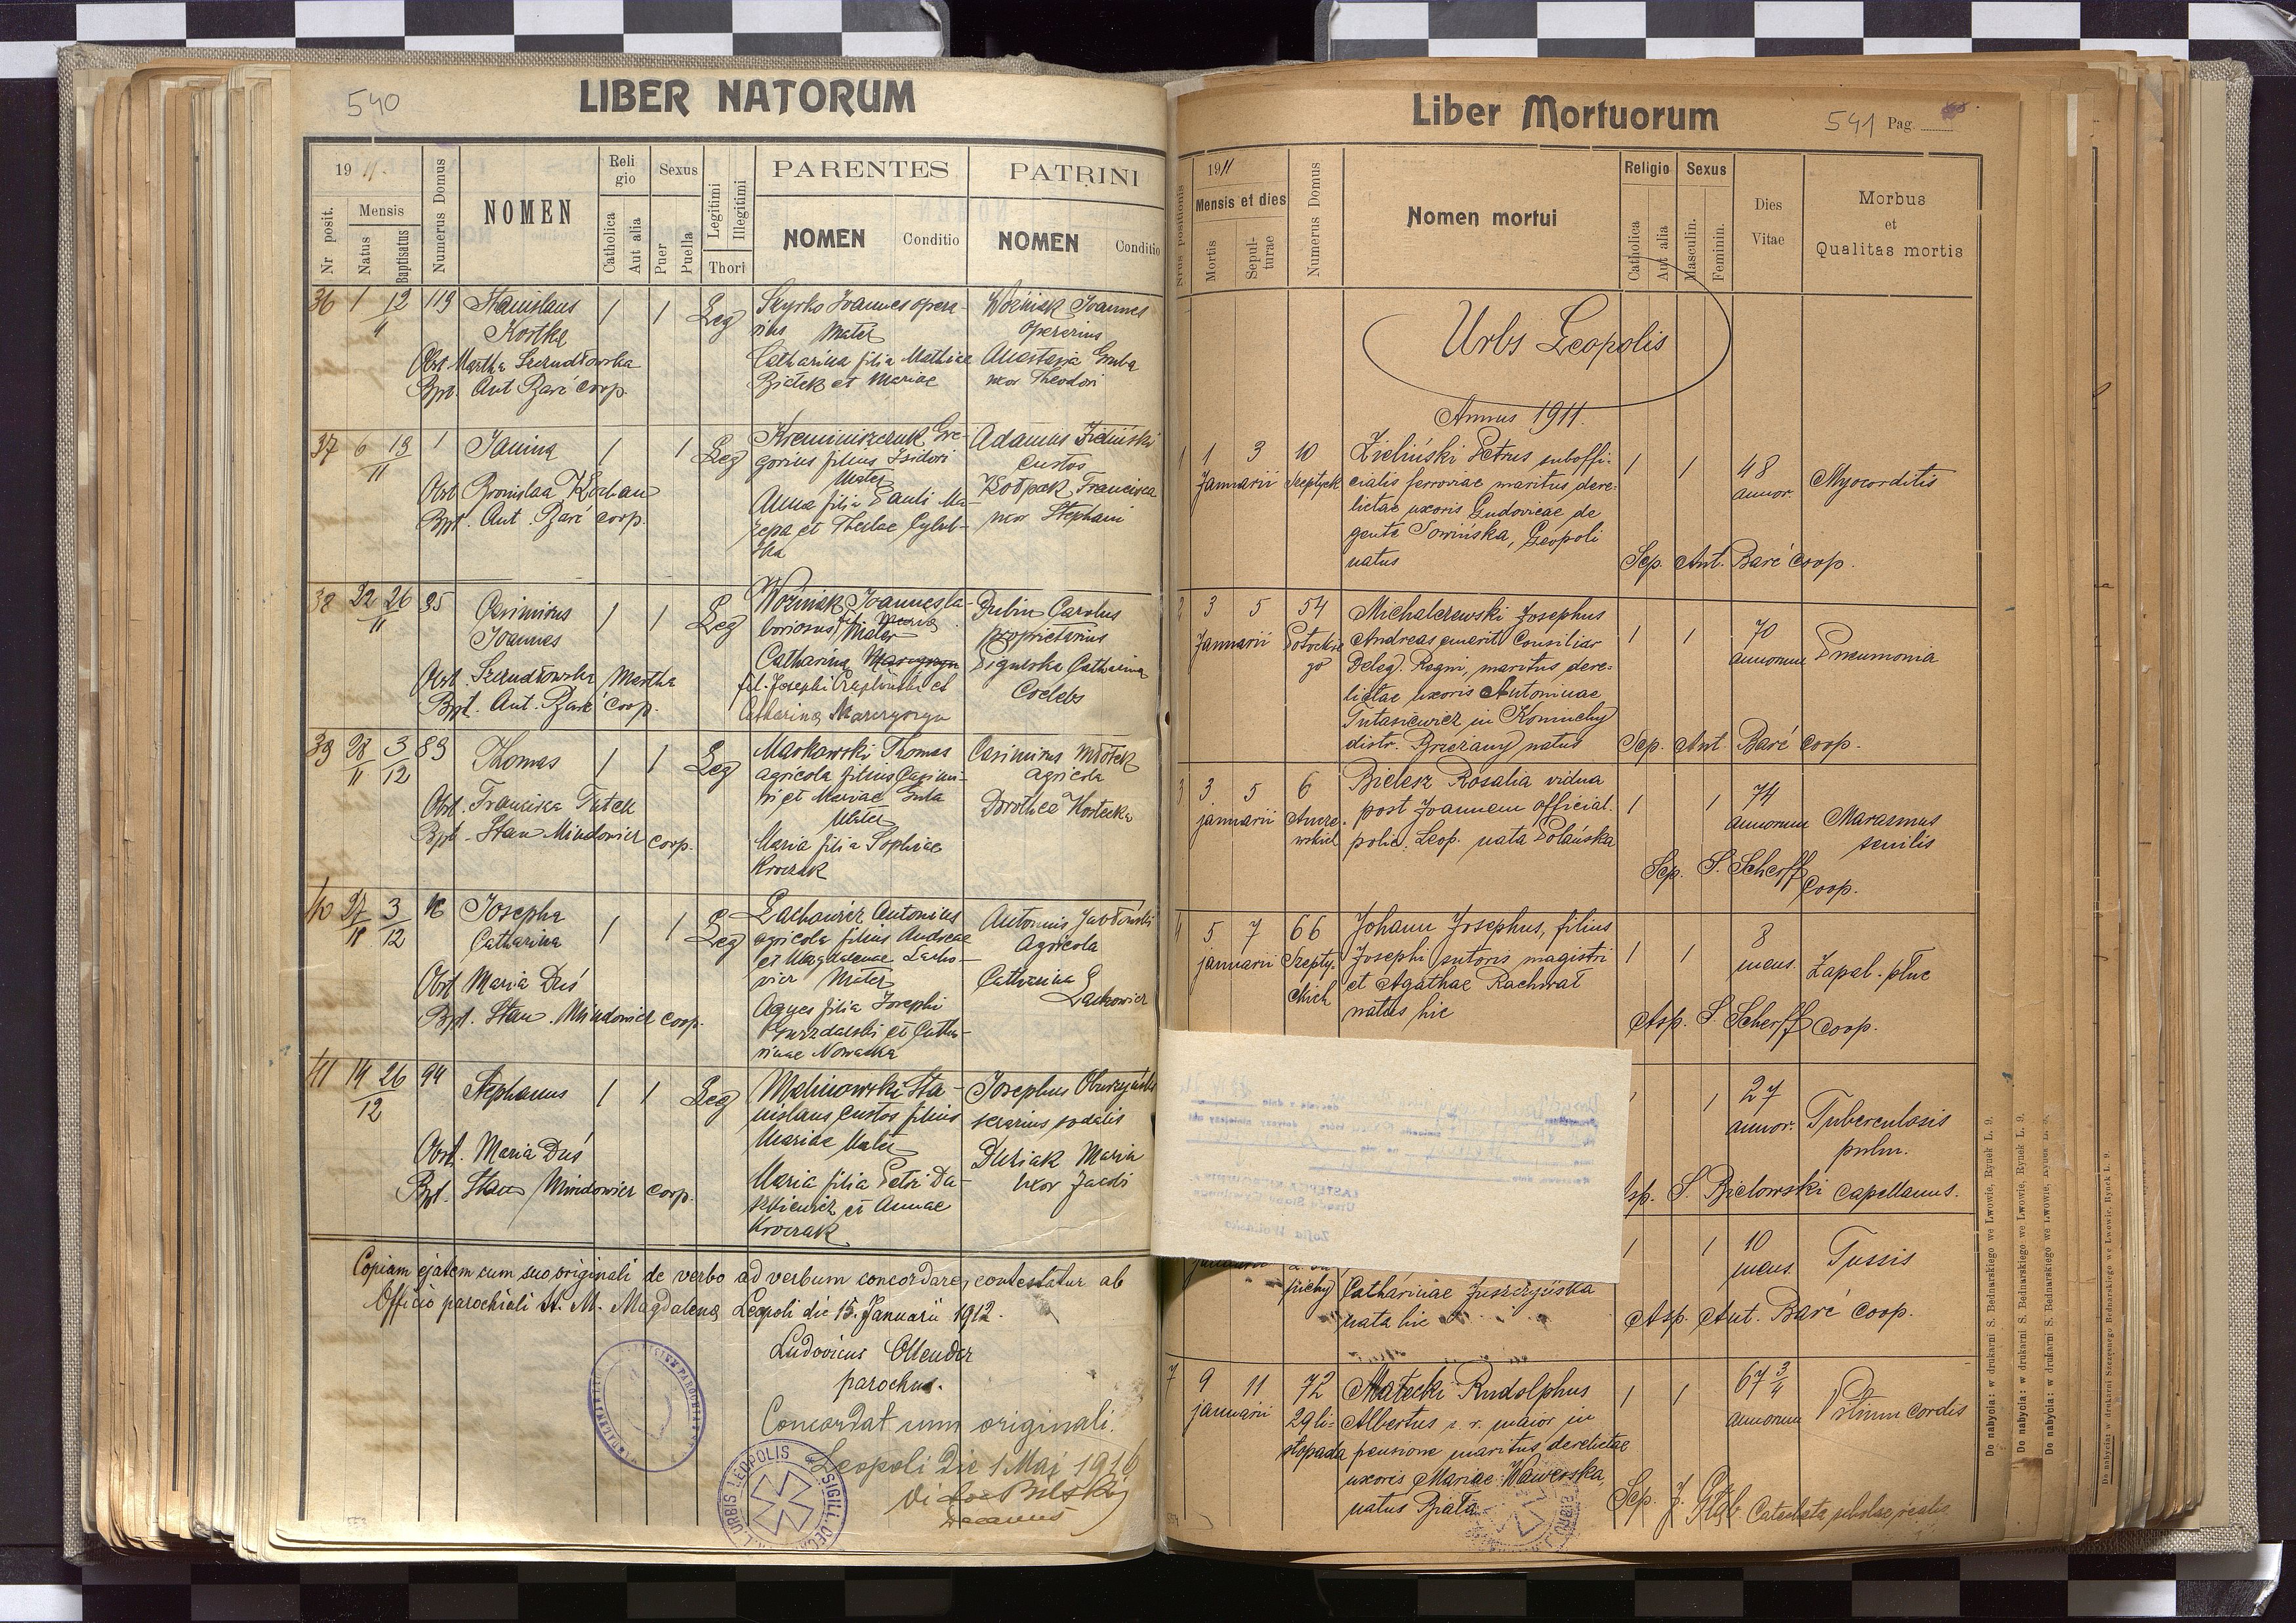 540
LIBER NATORUM
1911.
Nr posit.
Mensis
Natus
Baptisatus
Numerus Domus
NOMEN
Religio
Catholica
Aut alia
Sexus
Puer
Puella
Legitimi
Illegitimi
Thori
PARENTES
NOMEN
Conditio
PATRINI
NOMEN
Conditio
36 1 12/11 119 Stanislaus 1 1 Leg
Kostka
Obst. Martha
Bpt. Ant Baré coop.
Skyrko Joannes opera-
rius Mater
Catharina filia Mathiae
et Mariae
Woźniak Joannes
operarius
Anastasia
uxor Theodori
37 6 13/11 1 Janina 1 1 Leg
Obst
Bpt. Ant. Baré coop.
Gre-
gorius filius Isidori
Mater
Anna filia Pauli Ma-
zepa et Theclae
Adamus Zieliński
Custos
Kołpak Francisca
uxor Stephani
38 22 26/11 95 Casimirus 1 1 Leg
Joannes
Obst. Martha
Bpt. Ant. Baré coop.
Woźniak Joannes la-
boriosus
Mater
Catharina
fil. Josephi et
Catharina
Dubin Carolus
proprietarius
Catharina
Coelebs
39 28/11 3/12 83 Thomas 1 1 Leg
Obst. Franciska Tutek
Bpt. Stan Mindowicz coop.
Markowski Thomas
agricola filius Casimi-
ri et Mariae
Mater
Maria filia Sophiae
Kroczak
Casimirus Młotek
agricola
Dorothea Kostecka
40 27 3/12 16 Josepha 1 1 Leg
Catharina
Obst Maria Duś
Bpt. Stan. Mindowicz coop.
Lachowicz Antonius
agricola filius Andreae
et Magdalenae Lacho-
wicz Mater
Agnes filia Josephi
et Catha-
rinae Nowacka
Antonius
Agricola
Catharina
Lachowicz
41 14 26/12 94 Stephanus 1 1 Leg
Obst. Maria Duś
Bpt. Stan Mindowicz coop.
Malinowski Sta-
nislaus custos filius
Mariae Mater
Maria filia Petri Da-
szkiewicz et Annae
Kroczak
Josephus
sodalis
Maria
uxor Jacobi
Copiam ejatem cum suo originali de verbo ad verbum concordare, contestatur ab
Officio parochiali St. M. Magdalena Leopoli die 15. Januarii 1912.
Ludovicus Ollender
parochus.
Concordat cum originali.
Leopoli die 1 Maj 1916
Decanus
URBIS LEOPOLIS
Liber Mortuorum
541 Pag.
Nrus positionis
1911
Mensis et dies
Mortis
Sepulturae
Numerus Domus
Nomen mortui
Religio
Catholica
Aut alia
Sexus
Masculin.
Feminin.
Dies
Vitae
Morbus
et
Qualitas mortis
Urbs Leopolis
Annus 1911.
1 1 3 10 Zieliński Petrus suboffi- 1 1 48 Myocorditis
Januarii Szeptyck cialis ferroviae maritus dere- annor.
lictae uxoris Ludovicae de
gente Sowińska, Leopoli
natus Sep. Ant. Baré coop.
2 3 5 54 Michalczewski Josephus 1 1 70 Pneumonia
Januarii Potockie Andreas emerit. Consiliar annorum
go Deleg. Regni, maritus dere-
lictae uxoris Antoninae
in
distr. Brzeżany natus Sep. Ant Baré coop.
3 3 5 6 Bielesz Rosalia vidua 1 1 74 Marasmus
januarii post Joannem official. annorum senilis
polic. Leop. nata Polańska
Sep. S. Scherff
Coop.
4 5 7 66 Johann Josephus, filius 1 1 8 Zapal. płuc
januarii Szepty- Josephi sutoris magistri mens.
ckich et Agathae Rachwał
natus hic Asp. S. Scherff coop.
1 1 27 Tuberculosis
annor. pulm.
S. Bielowski capellanus.
1 1 10 Tussis
mens.
Catharinae Juszczyńska
nata hic Asp. Ant. Baré coop.
7 9 11 72 Małecki Rudolphus 1 1 67 3/4 Vitium cordis
januarii 29 li- Albertus maior in annorum
stopada pensione maritus derelictae
uxoris Mariae Wawerska,
natus Biała Sep. J. Głąb
Do nabycia: w drukarni S. Bednarskiego we Lwowie, Rynek L. 9.
Do nabycia: w drukarni S. Bednarskiego we Lwowie, Rynek L. 9.
Do nabycia: w drukarni S. Bednarskiego we Lwowie, Rynek L. 9.
Do nabycia: w drukarni Szczęsnego Bednarskiego we Lwowie, Rynek L. 9.